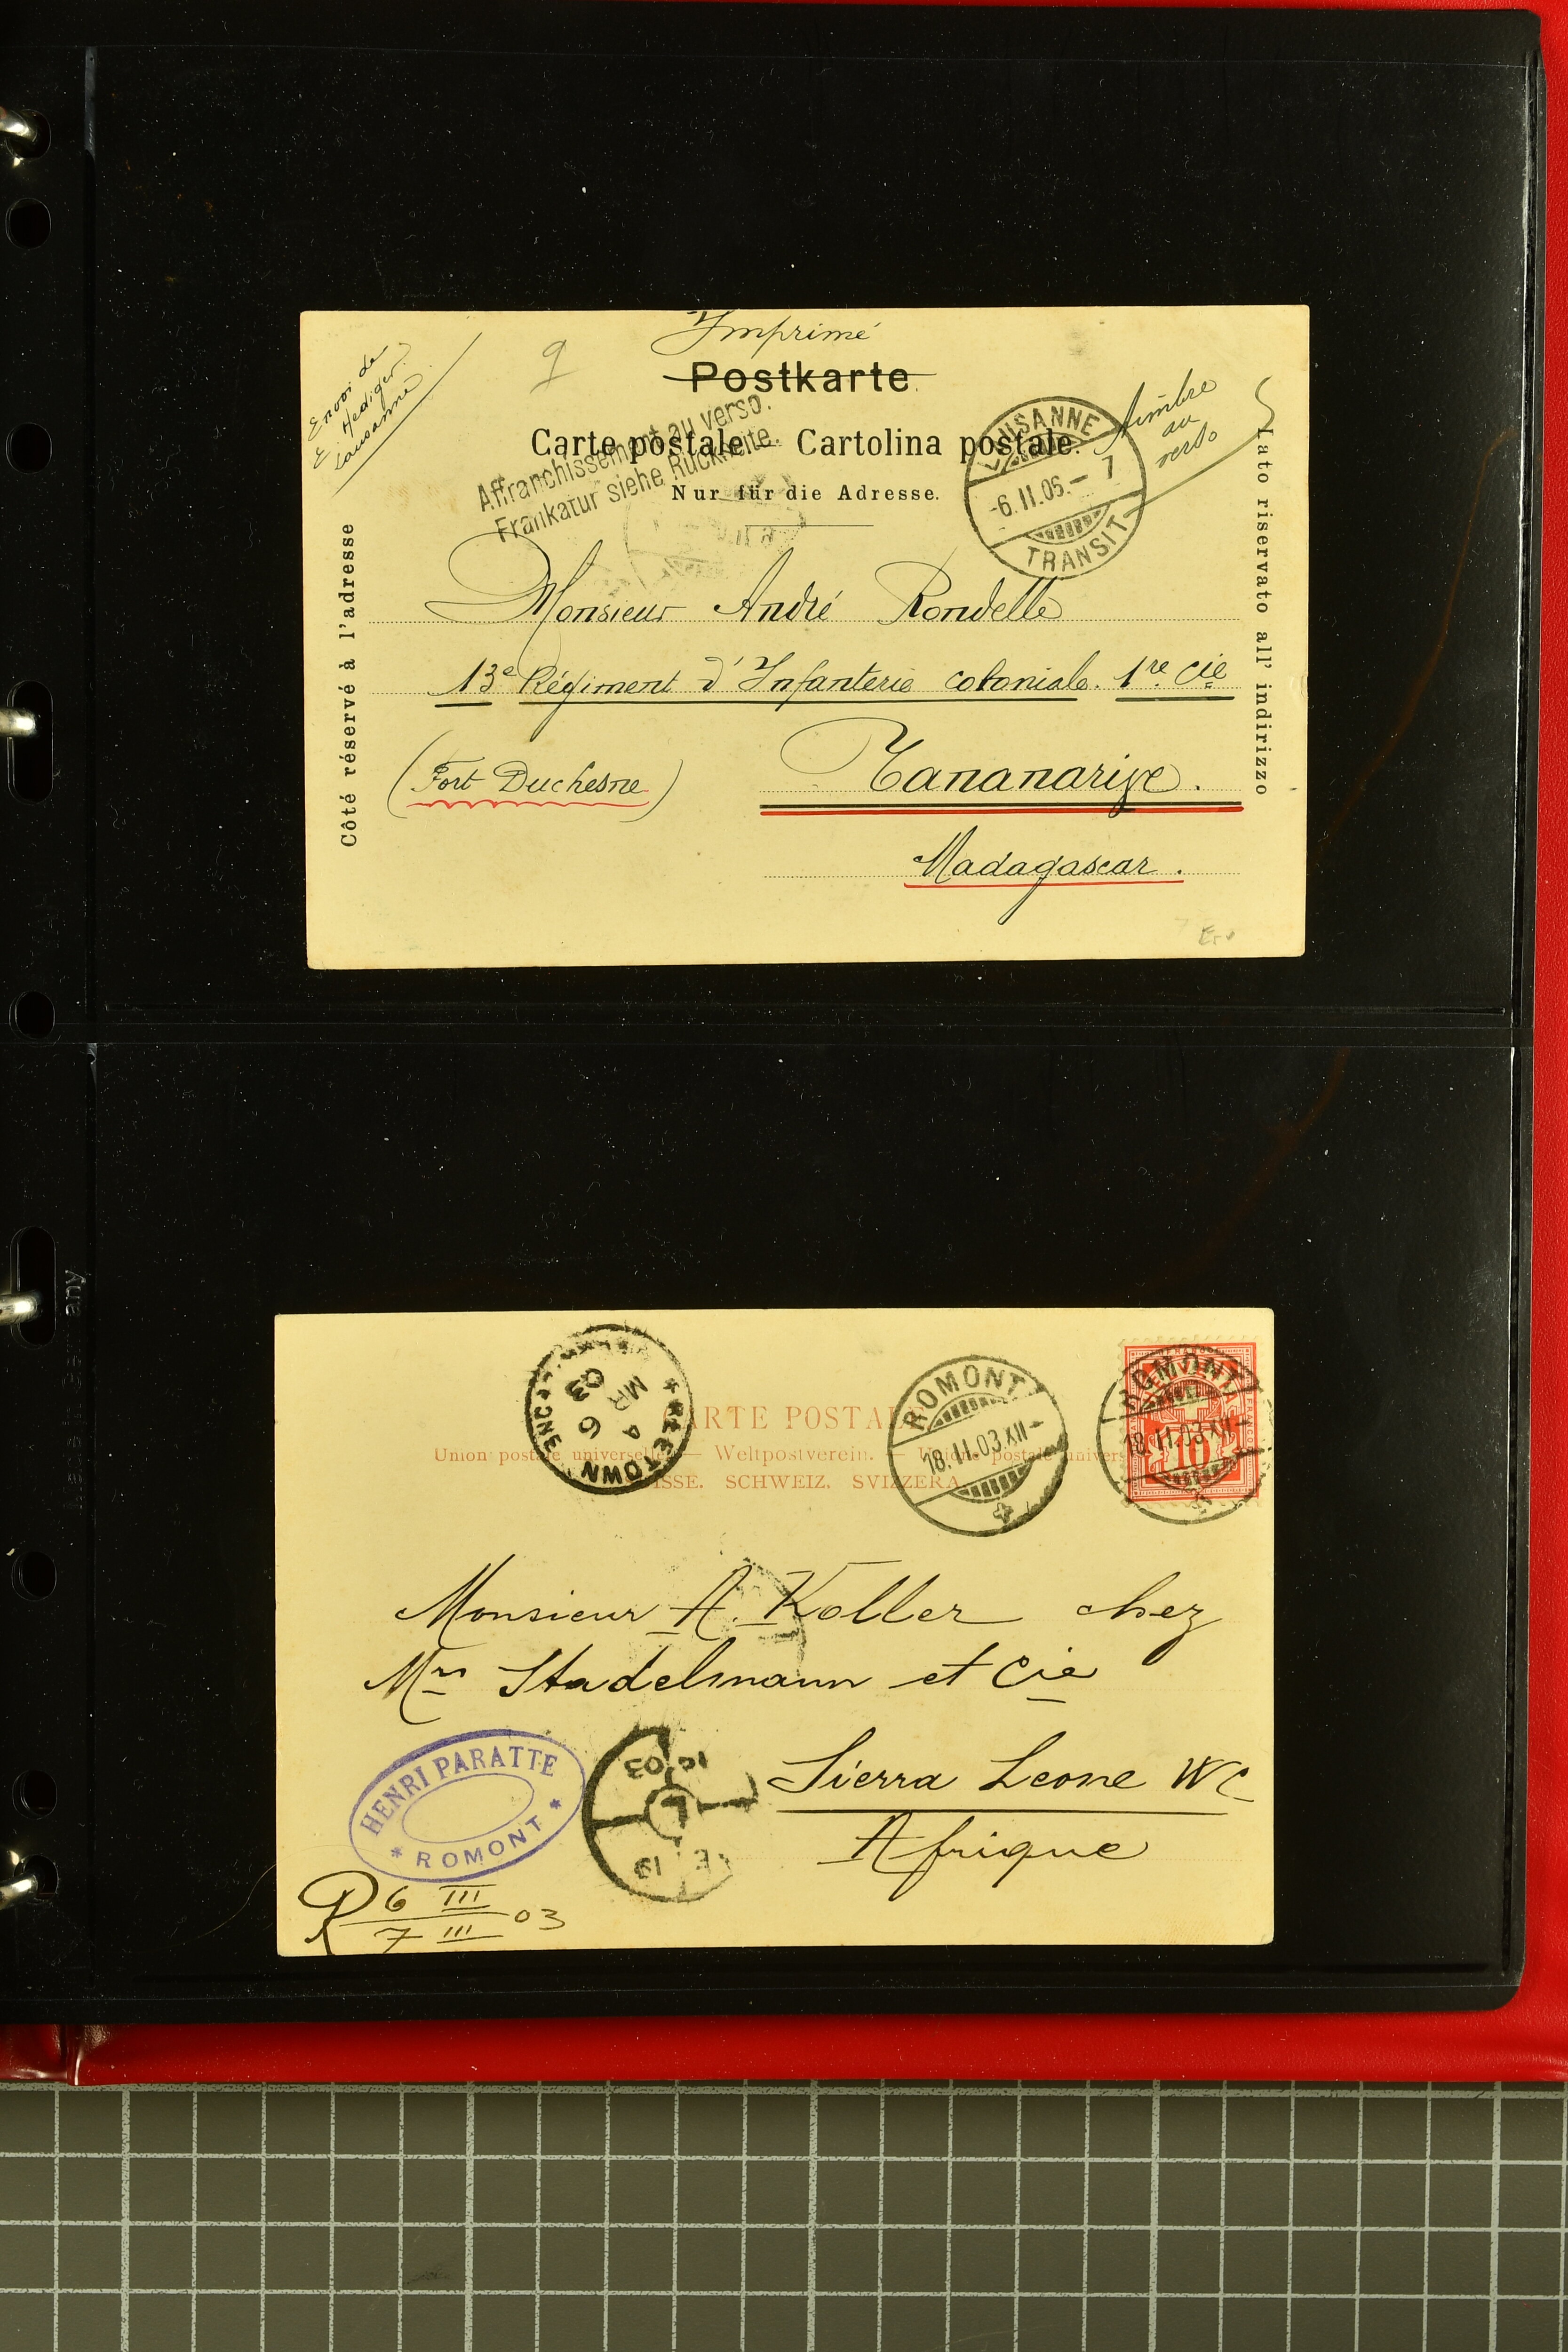 Imprimé
Envoi de
E. Hediger.
Lausanne
9
Postkarte.
Carte postale. — Cartolina postale.
Nur für die Adresse.
Affranchissement au verso.
Frankatur siehe Rückseite.
LAUSANNE
-6.II.06.- 7
TRANSIT
timbre
au
verso
Côté réservé à l'adresse
Lato riservato all' indirizzo
Monsieur André Rondelle
13e Régiment d'Infanterie coloniale. 1re Cie
(Fort Duchesne) Tananarive.
Madagascar.
FREETOWN
A
MR 6
03
CARTE POSTALE
Union postale universelle. — Weltpostverein. — Unione postale universale
SUISSE. SCHWEIZ. SVIZZERA.
ROMONT
18.II.03.XII-
ROMONT
18.II.03.XII-
10
Monsieur A. Koller chez
Mrs Stadelmann et Cie
Sierra Leone WC
Afrique
HENRI PARATTE
* ROMONT *
L
03
19
R 6 III
7 III 03